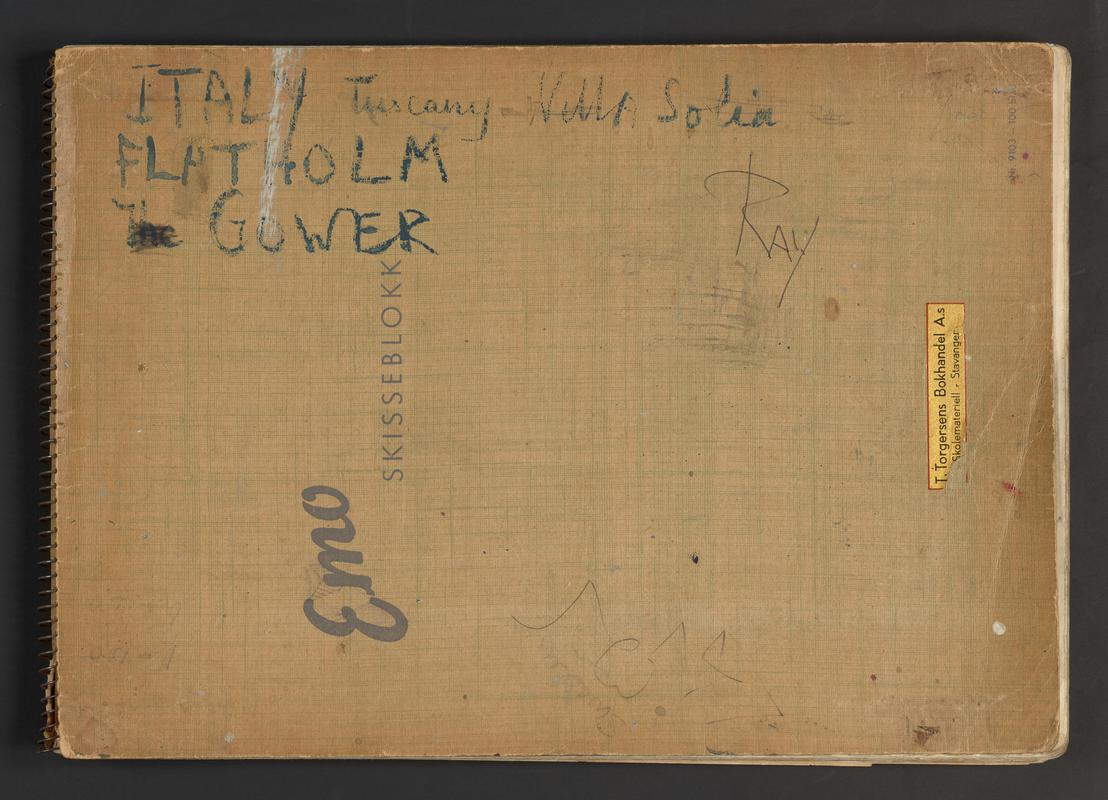 ITALY Tuscany - Villa Solia
FLATHOLM
The GOWER
RAY
SKISSEBLOKK
Emo
T. Torgersens Bokhandel A.s
Skolemateriell - Stavanger